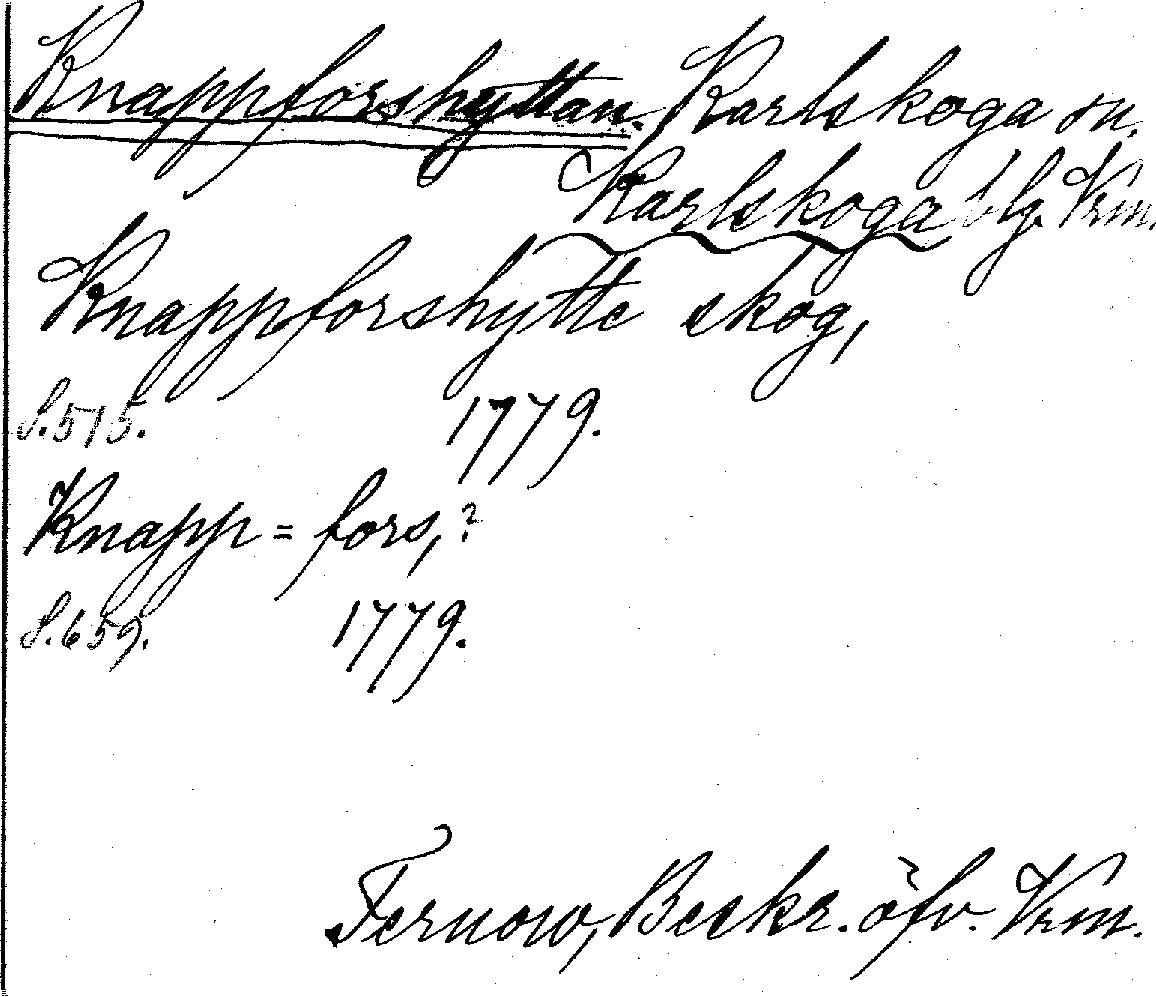 Knappforshyttan. Karlskoga sn.
Karlskoga blg. Vrm.
Knappforshytte skog,
S. 515. 1779.
Knapp=fors,?
S. 659. 1779.
Fernow, Beskr. öfv. Vrm.